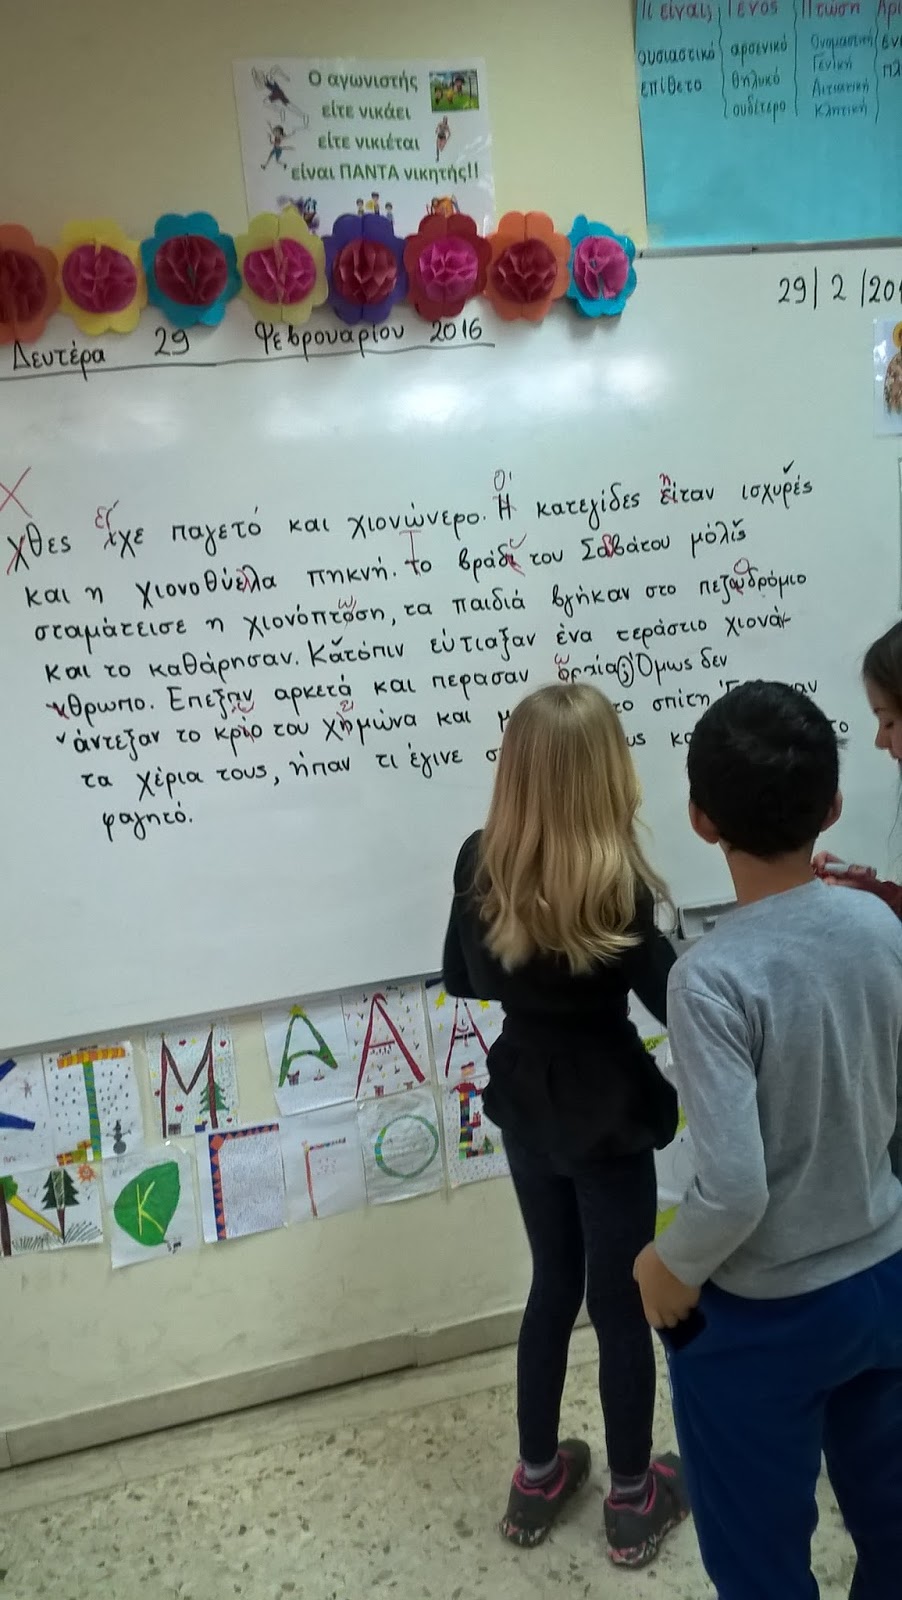 Ο αγωνιστής
είτε νικάει
είτε νικιέται
είναι ΠΑΝΤΑ νικητής!!
Τι είναι; Γένος Πτώση
ουσιαστικό αρσενικό Ονομαστική
επίθετο θηλυκό Γενική
ουδέτερο Αιτιατική
Κλητική
29/2/20
Δευτέρα 29 Φεβρουαρίου 2016
χθες είχε παγετό και χιονώνερο. Οι κατεγίδες ήταν ισχυρές
και η χιονοθύελλα πηκνή. Το βράδυ του Σαββάτου μόλις
σταμάτεισε η χιονόπτωση, τα παιδιά βγήκαν στο πεζοδρόμιο
και το καθάρησαν. Κατόπιν εύτιαξαν ένα τεράστιο χιονά
νθρωπο. Επεξαν αρκετά και περασαν ωραία; Όμως δεν
άντεξαν το κρύο του χειμώνα και το σπίτη
τα χέρια τους, ήπαν τι έγινε
φαγητό.
Κ Τ Μ Α Λ Α
Κ Γ Γ Ο Ε